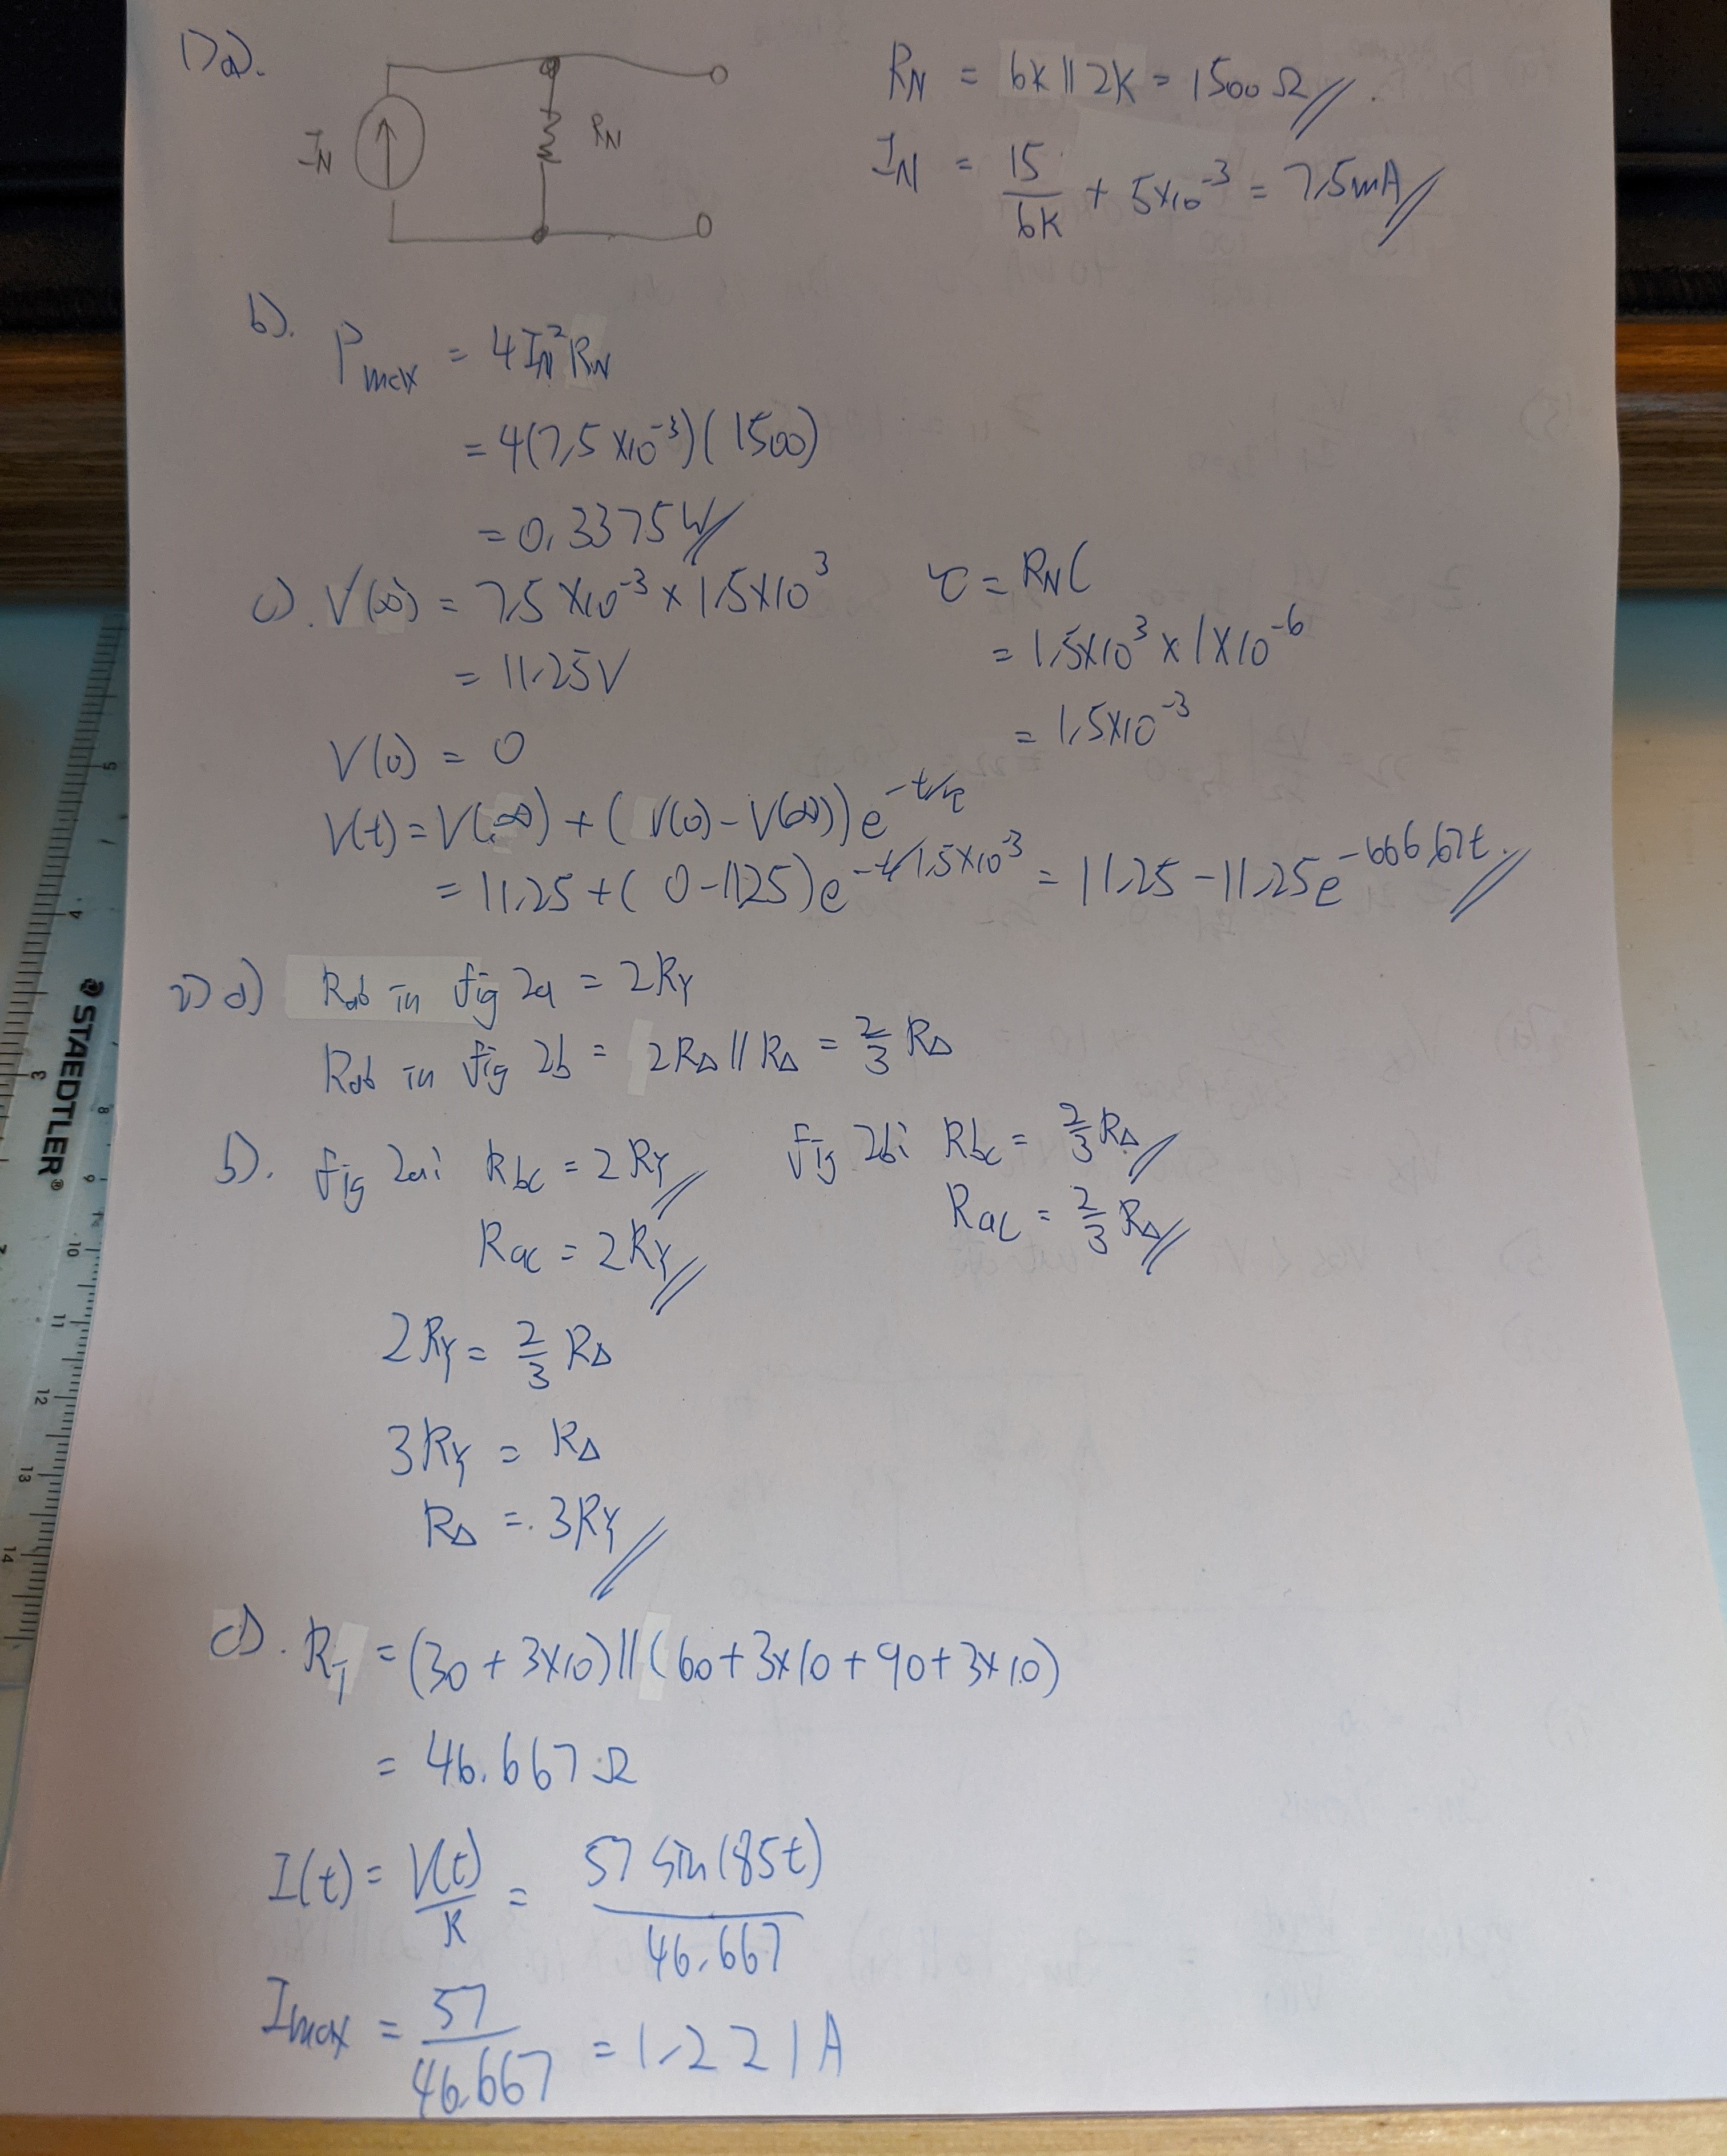 1)a).
I_N
R_N
R_N = 6K || 2K = 1500 Ω //.
I_N = 15/6K + 5×10^-3 = 7.5mA //
b). P_max = 4 I_N^2 R_N
= 4(7.5 ×10^-3)(1500)
= 0.3375W //
c). V(∞) = 7.5 ×10^-3 × 1.5×10^3
= 11.25V
τ = R_N C
= 1.5×10^3 × 1×10^-6
= 1.5×10^-3
V(0) = 0
V(t) = V(∞) + (V(0) - V(∞)) e^-t/τ
= 11.25 + (0-11.25) e^-t/1.5×10^-3 = 11.25 - 11.25e^-666.67t. //
2) a) Rab in fig 2a = 2R_Y
Rab in fig 2b = 2R_Δ || R_Δ = 2/3 R_Δ
b). fig 2a: Rbc = 2R_Y // fig 2b: Rbc = 2/3 R_Δ //
Rac = 2R_Y // Rac = 2/3 R_Δ //
2R_Y = 2/3 R_Δ
3R_Y = R_Δ
R_Δ = 3R_Y //
c). R_T = (30 + 3×10) || (60 + 3×10 + 90 + 3×10)
= 46.667 Ω
I(t) = V(t)/R = 57 sin(85t)/46.667
Imax = 57/46.667 = 1.221A
STAEDTLER®
5
4
3
7
8
9
10
11
12
13
14